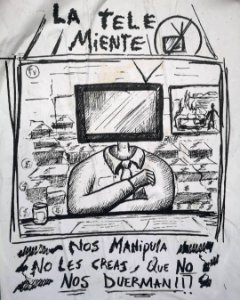 LA TELE
MIENTE
TV
NOS MANIPULA
NO LES CREAS, QUE NO
NOS DUERMAN!!!